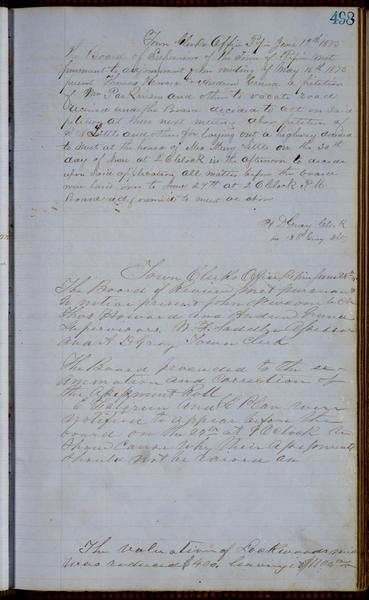 493
Town Clerks Office Pepin June 19th 1875
The Board of Supervisors of the Town of Pepin met
pursuant to adjournment from meeting of May 15th 1875
present Thomas Howard Andrew petition
of Wm Parkinson and others to vacate road
received and the Board decided to act on said
petition at their next meeting also petition of
Little and others for laying out a highway
to meet at the house of Mrs Mary Little on the 30th
day of June at 2 Oclock in the afternoon to decide
upon said application all matters before the board
were laid over to June 29th at 2 Oclock P.M.
Board adjourned to meet as above
A D Gray Clerk
Town Clerks Office Pepin June 28th
The Board of Review met pursuant
to notice present John
Thos Howard and Andrew
Supervisors Assessor
and A D Gray Town Clerk
The Board proceeded to the ex-
amination and correction of
the Assessment Roll
and were
notified to appear before the
board on the 29th at Oclock to
show cause why their Assessments
should not be raised
The valuation of Lockwoods mill
was reduced $400. leaving